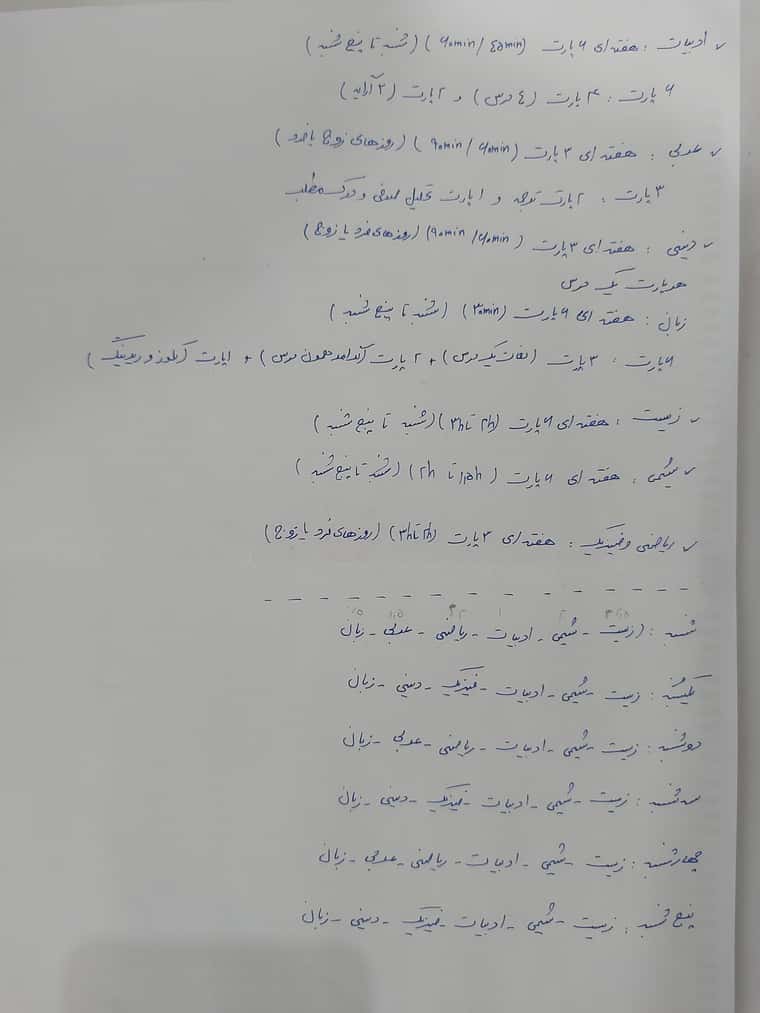 ✓ ادبیات : هفته ای ۶ پارت (۴۵min / ۶۰min) (شنبه تا پنج شنبه)
۶ پارت : ۴ پارت (۴ درس) و ۲ پارت (۳ آرایه)
✓ عربی : هفته ای ۳ پارت (۶۰min / ۹۰min) (روزهای زوج یا فرد)
۳ پارت : ۲ پارت ترجمه و ۱ پارت تحلیل صرفی و درک مطلب
✓ دینی : هفته ای ۳ پارت (۶۰min / ۹۰min) (روزهای فرد یا زوج)
هر پارت یک درس
زبان : هفته ای ۶ پارت (۳۰min) (شنبه تا پنج شنبه)
۶ پارت : ۳ پارت (لغات یک درس) + ۲ پارت (گرامر همون درس) + ۱ پارت (کلوز و ریدینگ)
✓ زیست : هفته ای ۶ پارت (۲h تا ۳h) (شنبه تا پنج شنبه)
✓ شیمی : هفته ای ۶ پارت (۱,۵h تا ۲h) (شنبه تا پنج شنبه)
✓ ریاضی و فیزیک : هفته ای ۳ پارت (۲h تا ۳h) (روزهای فرد یا زوج)
شنبه : زیست - شیمی - ادبیات - ریاضی - عربی - زبان
یکشنبه : زیست - شیمی - ادبیات - فیزیک - دینی - زبان
دوشنبه : زیست - شیمی - ادبیات - ریاضی - عربی - زبان
سه شنبه : زیست - شیمی - ادبیات - فیزیک - دینی - زبان
چهارشنبه : زیست - شیمی - ادبیات - ریاضی - عربی - زبان
پنج شنبه : زیست - شیمی - ادبیات - فیزیک - دینی - زبان